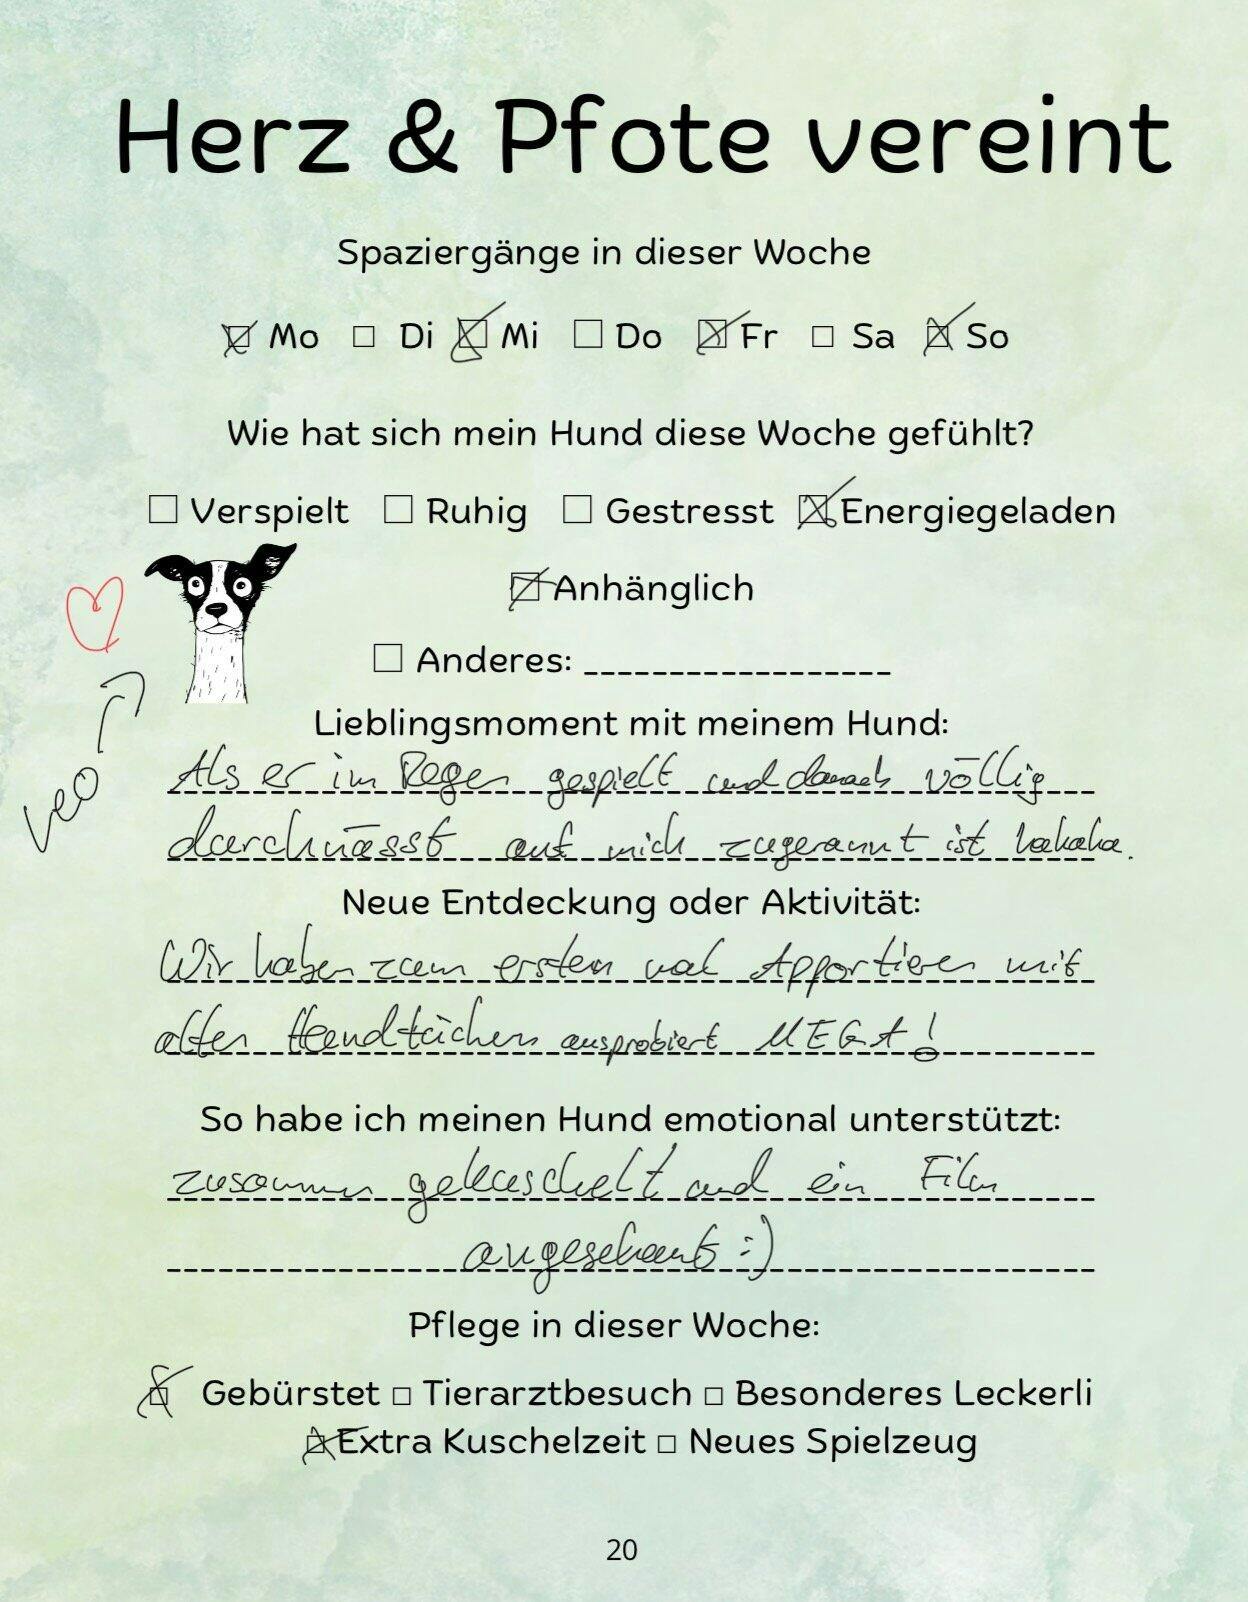 Herz & Pfote vereint
Spaziergänge in dieser Woche
☒ Mo ☐ Di ☒ Mi ☐ Do ☒ Fr ☐ Sa ☒ So
Wie hat sich mein Hund diese Woche gefühlt?
☐ Verspielt ☐ Ruhig ☐ Gestresst ☒ Energiegeladen
☒ Anhänglich
☐ Anderes: __________________
Leo
Lieblingsmoment mit meinem Hund:
Als er im Regen gespielt und danach völlig
durchnässt auf mich zugerannt ist hahaha.
Neue Entdeckung oder Aktivität:
Wir haben zum ersten mal Apportieren mit
alten Handtüchern ausprobiert MEGA!
So habe ich meinen Hund emotional unterstützt:
zusammen gekuschelt und ein Film
angeschaut :)
Pflege in dieser Woche:
☒ Gebürstet ☐ Tierarztbesuch ☐ Besonderes Leckerli
☒ Extra Kuschelzeit ☐ Neues Spielzeug
20